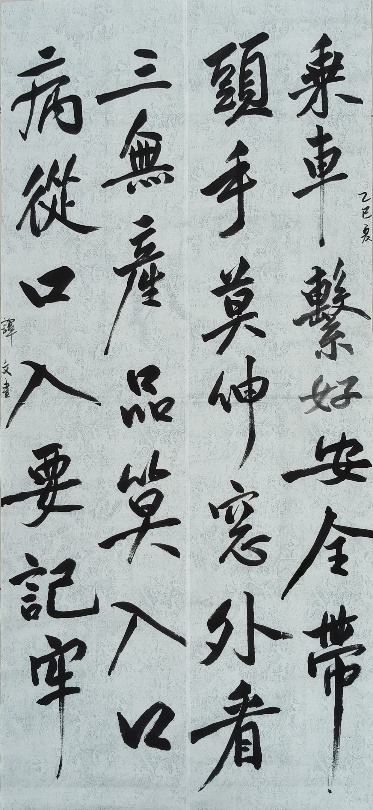 乙巳夏
乘車繫好安全帶
頭手莫伸窓外看
三無產品莫入口
病從口入要記牢
譚文書